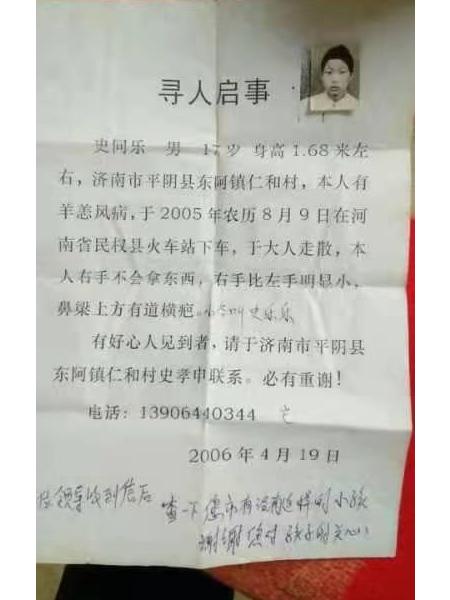 寻人启事
史同乐 男 17岁 身高1.68米左
右，济南市平阴县东阿镇仁和村，本人有
羊恙风病，于2005年农历8月9日在河
南省民权县火车站下车，于大人走散，本
人右手不会拿东西，右手比左手明显小，
鼻梁上方有道横疤。小名叫史乐乐
有好心人见到者，请于济南市平阴县
东阿镇仁和村史孝申联系。必有重谢！
电话：13906440344
2006年4月19日
领导收到信后
查一下您市有没有这样的小孩
谢谢您对孩子的关心